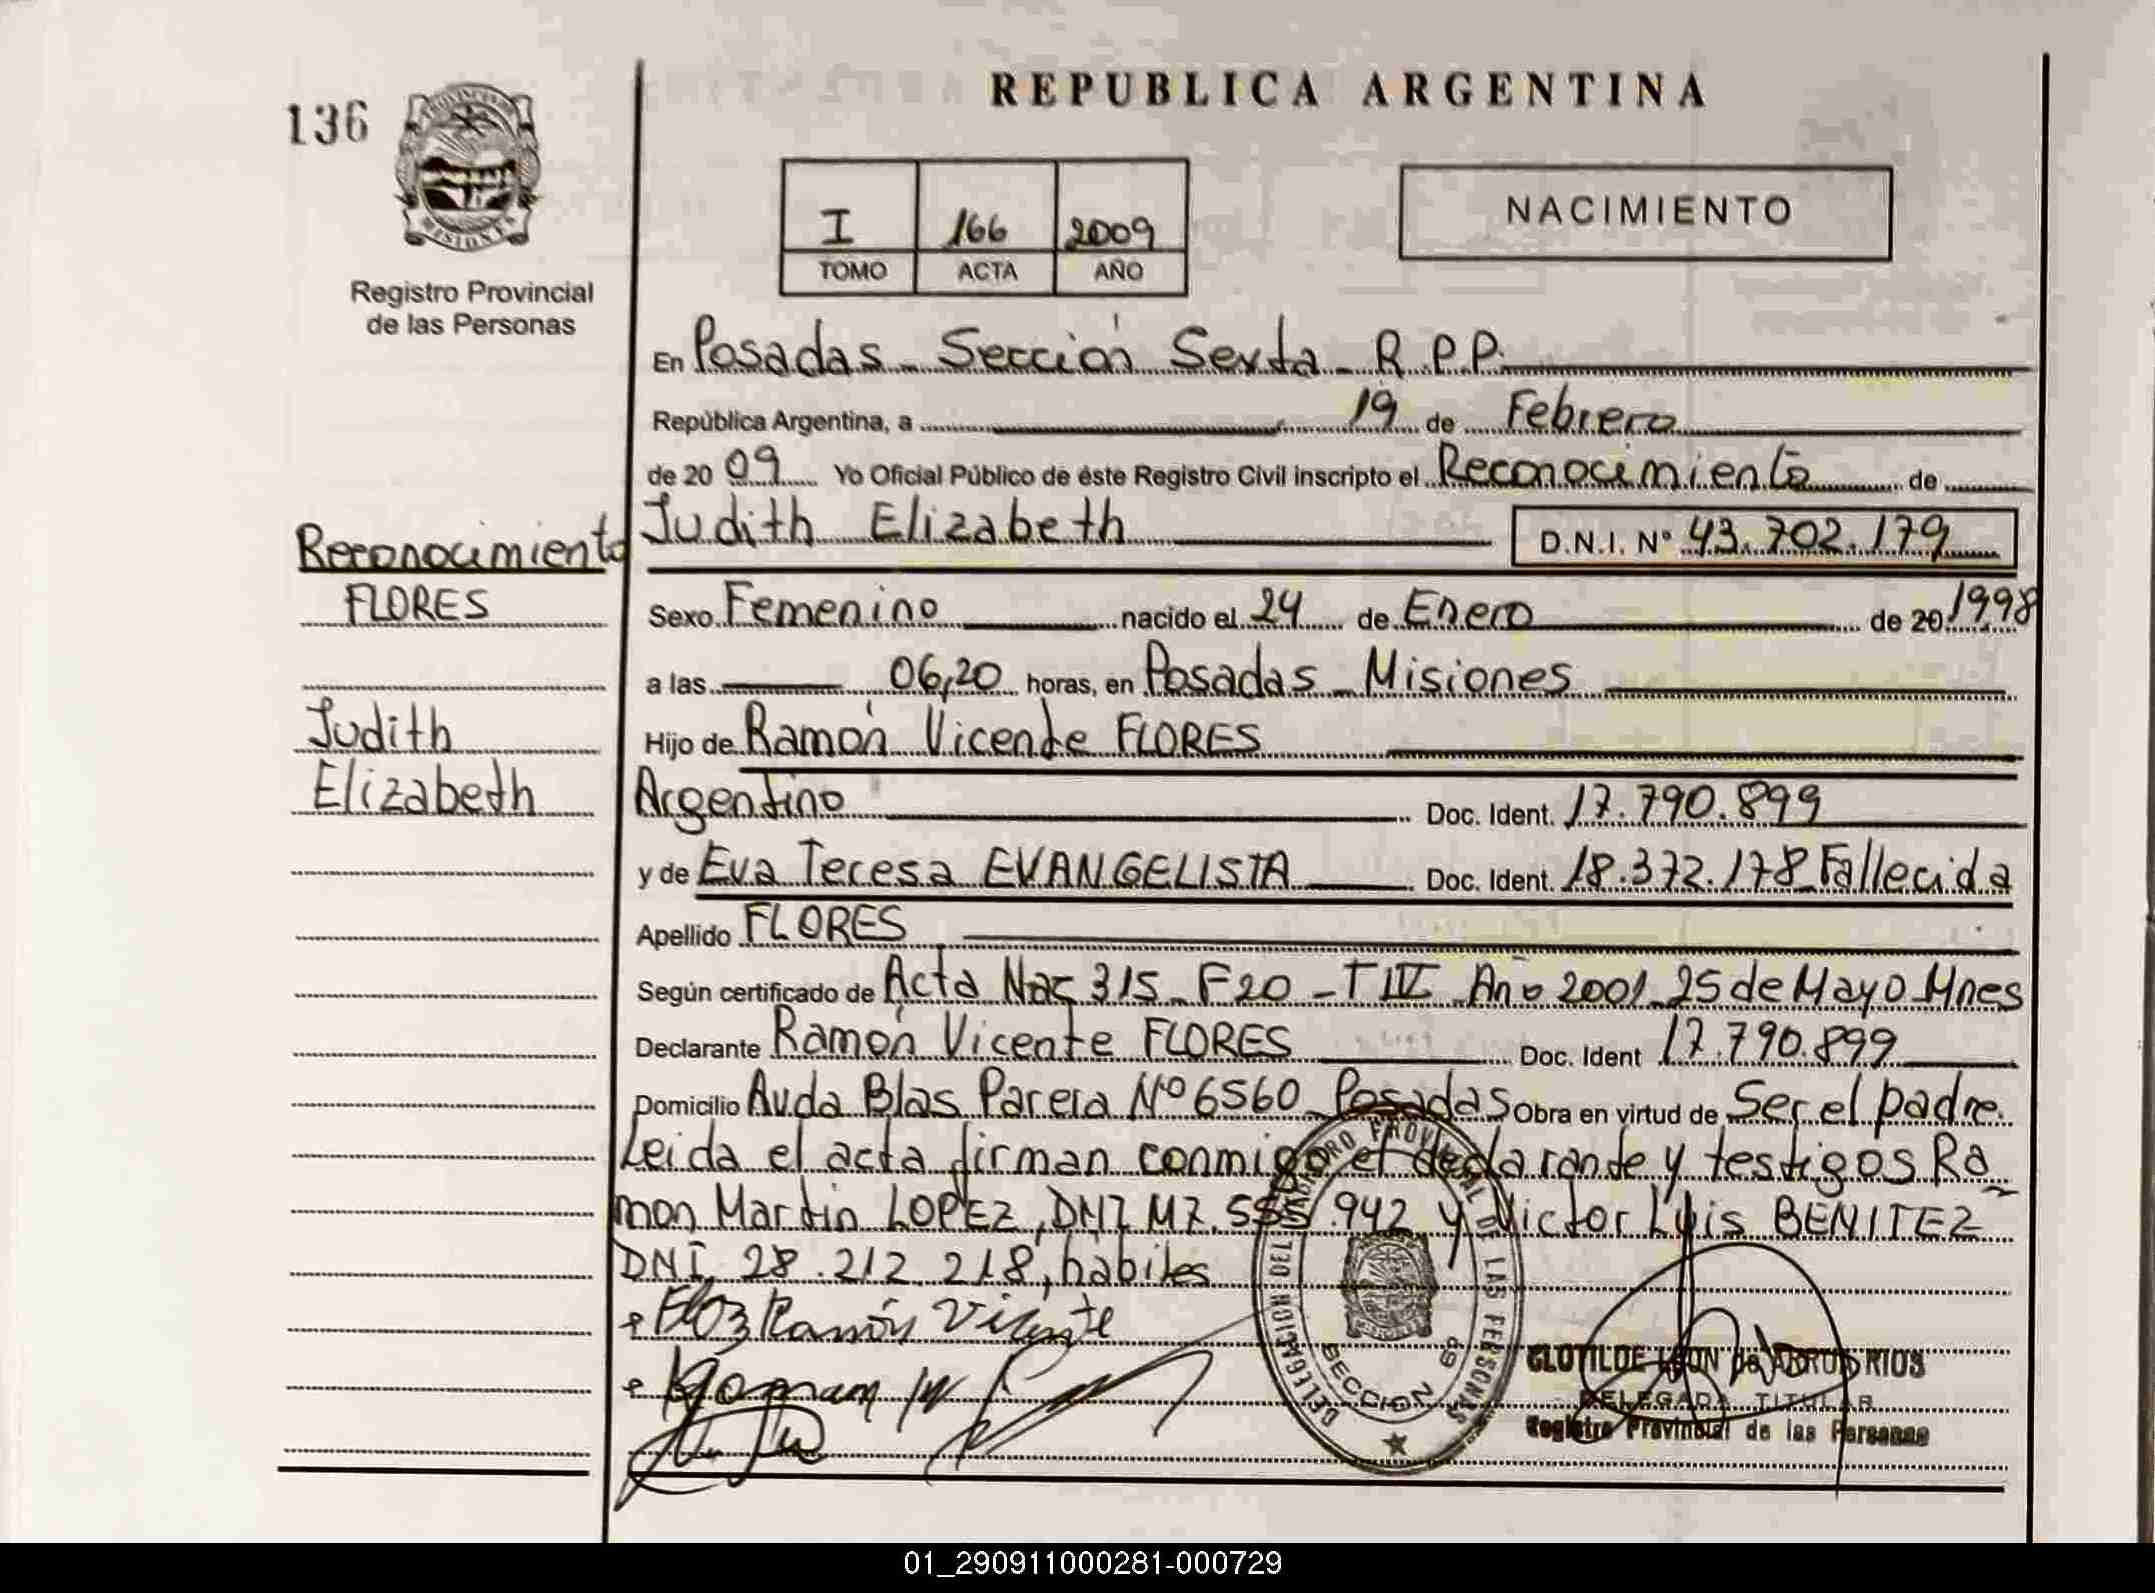 REPUBLICA ARGENTINA
136
PROVINCIA DE
MISIONES
Registro Provincial
de las Personas
I 166 2009
TOMO ACTA AÑO
NACIMIENTO
En Posadas - Sección Sexta - R.P.P.
República Argentina, a 19 de Febrero
de 20 09 Yo Oficial Público de éste Registro Civil inscripto el Reconocimiento de
Judith Elizabeth D.N.I. N° 43.702.179
Reconocimiento
FLORES
Judith
Elizabeth
Sexo Femenino nacido el 24 de Enero de 20 1998
a las 06,20 horas, en Posadas - Misiones
Hijo de Ramón Vicente FLORES
Argentino Doc. Ident. 17.790.899
y de Eva Teresa EVANGELISTA Doc. Ident. 18.372.178 Fallecida
Apellido FLORES
Según certificado de Acta Nac 315 - F 20 - T IV Año 2001 - 25 de Mayo - Mnes
Declarante Ramón Vicente FLORES Doc. Ident 17.790.899
Domicilio Avda Blas Parera Nº 6560 Posadas Obra en virtud de Ser el padre.
Leida el acta firman conmigo el declarante y testigos Ra
mon Martin LOPEZ, DNI M7.555.942 y Victor Luis BENITEZ
DNI 28.212.218, habiles
Ramón Vicente
DELEGACION DEL REGISTRO PROVINCIAL DE LAS PERSONAS
SECCION 6º
CLOTILDE LEON de RIOS
DELEGADA TITULAR
Registro Provincial de las Personas
01_290911000281-000729